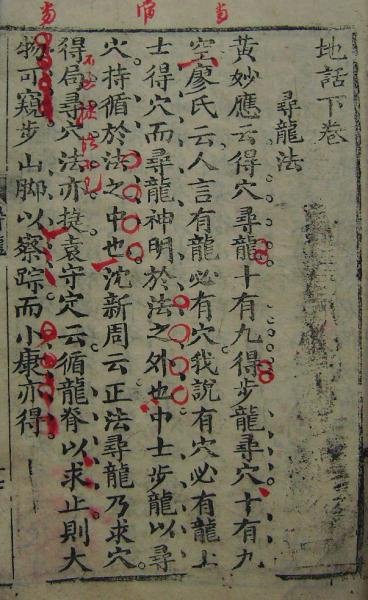 地話下卷
尋龍法
黃妙應云得穴尋龍十有九得步龍尋穴十有九
空廖氏云人言有龍必有穴我說有穴必有龍上
士得穴而尋龍神明於法之外也中士步龍以尋
穴持循於法之中也沈新周云正法尋龍乃求穴
得局尋穴法亦捷袁守穴云循龍脊以求止則大
物可窺步山脚以察踪而小康亦得